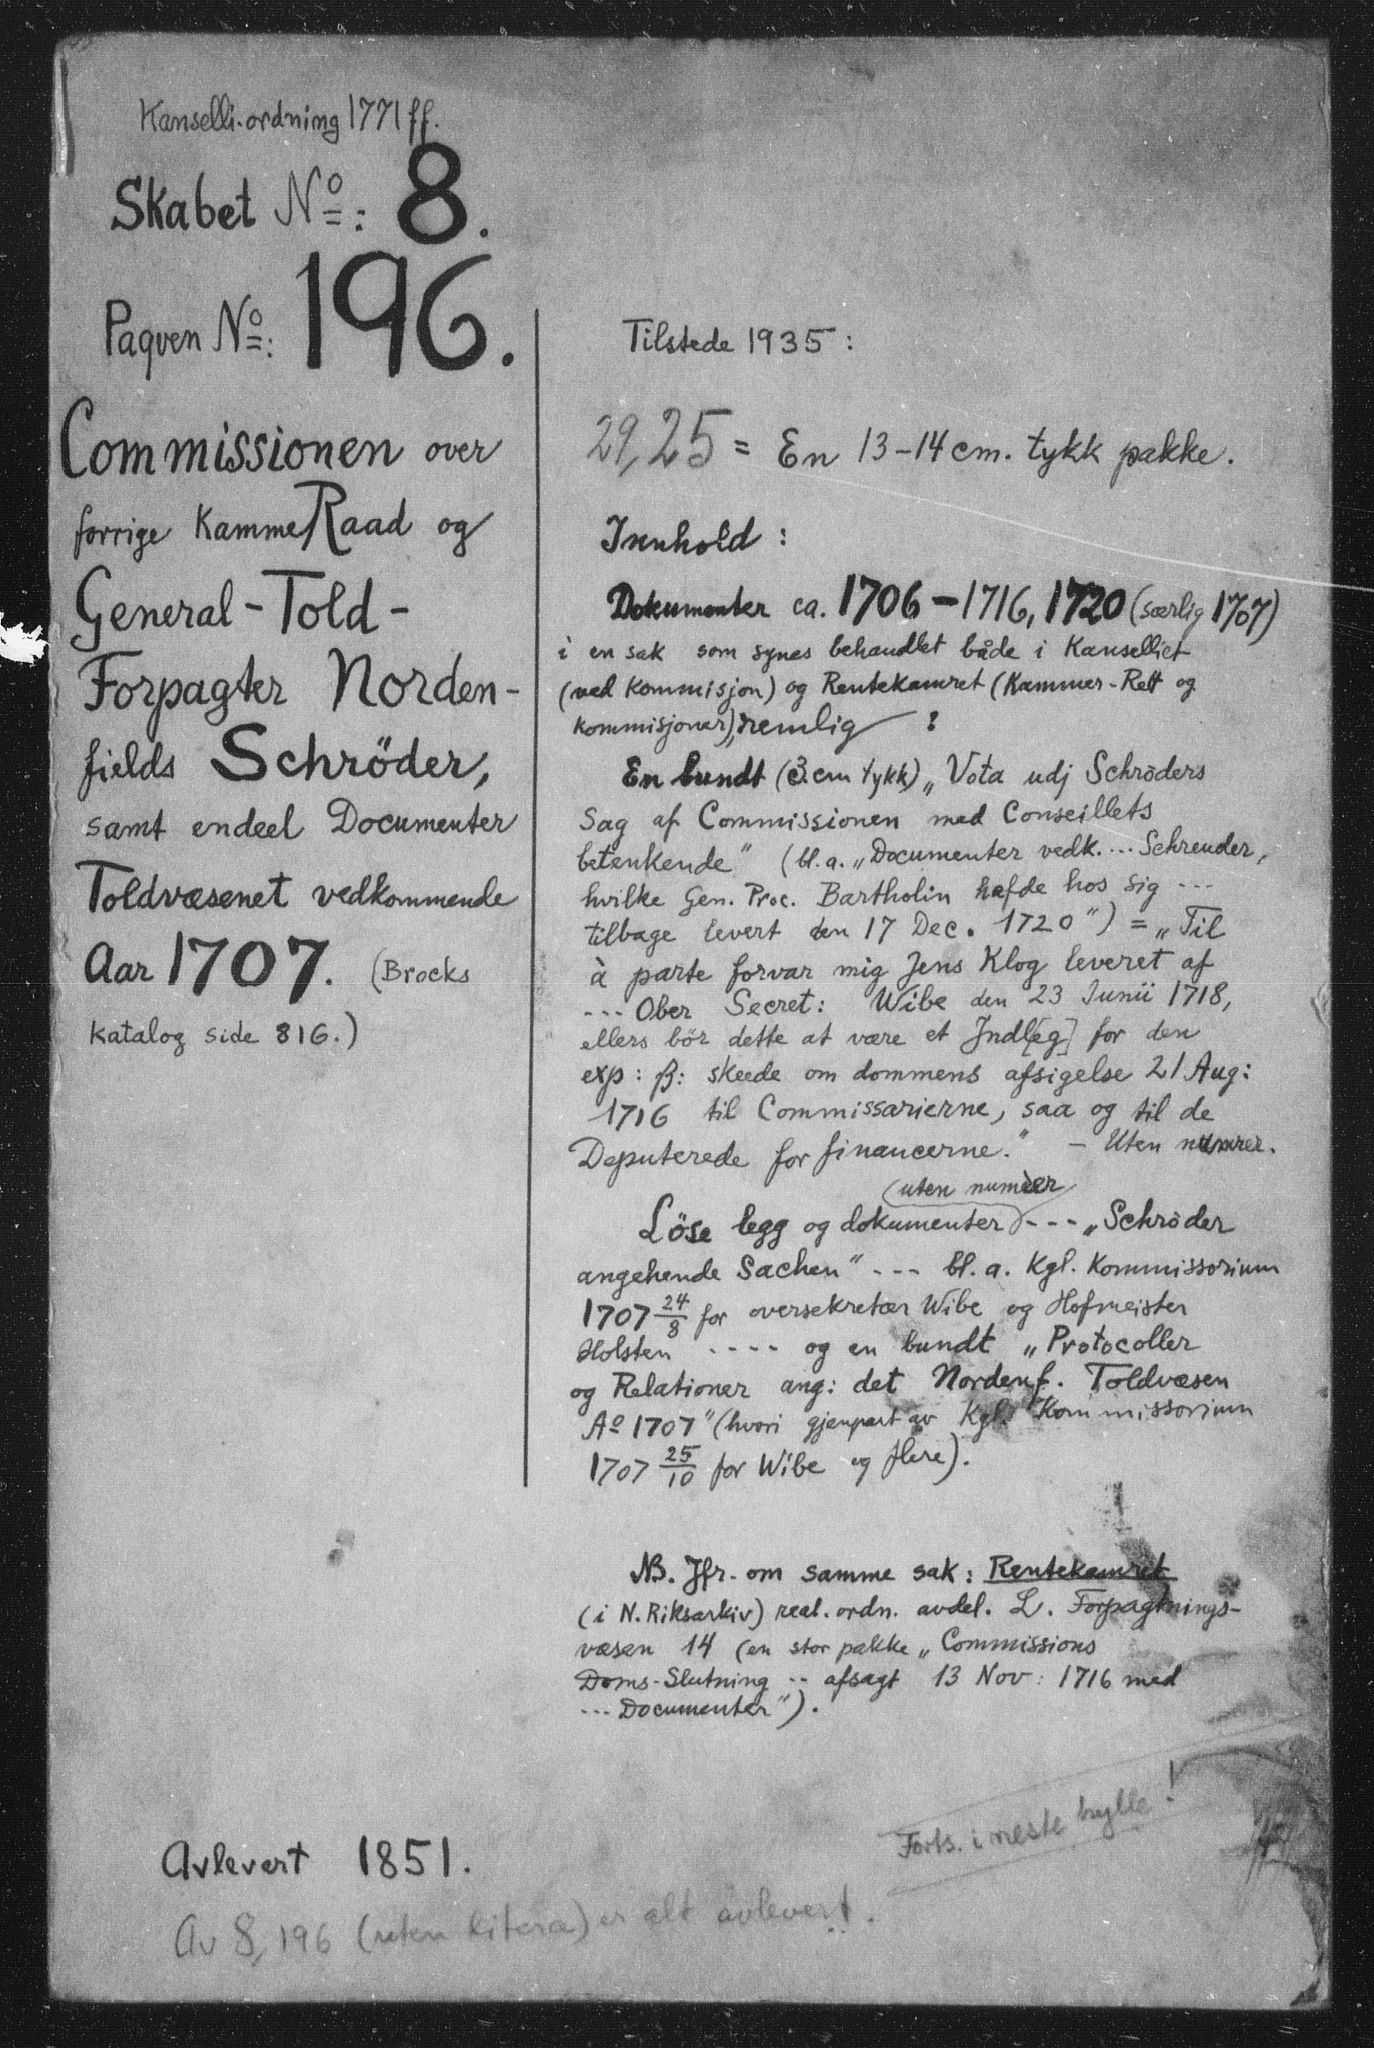 Kanselli-ordning 1771 ff.
Skabet No: 8.
Paqven No: 196.
Commissionen over
forrige KammeRaad og
General-Told-
Forpagter Norden-
fields Schröder,
samt endeel Documenter
Toldvæsenet vedkommende
Aar 1707. (Brocks
katalog side 816.)
Tilstede 1935:
29,25 = En 13-14 cm. tykk pakke.
Innhold:
Dokumenter ca. 1706-1716, 1720 (særlig 1707)
i en sak som synes behandlet både i Kanselliet
(ved kommisjon) og Rentekamret (Kammer-Rett og
kommisjoner), nemlig:
En bundt (3 cm tykk) „Vota udj Schröders
Sag af Commissionen med Conseillets
betenkende" (bl.a. „Documenter vedk. ... Schreuder,
hvilke Gen. Proc. Bartholin hafde hos sig ---
tilbage levert den 17 Dec. 1720") = „Til
à parte forvar mig Jens Klog leveret af
--- Ober Secret: Wibe den 23 Junii 1718,
ellers bör dette at være et Indl[eg] for den
exp: ß: skeede om dommens afsigelse 21 Aug:
1716 til Commissarierne, saa og til de
Deputerede for financerne." - Uten numrer.
(uten numrer)
Löse legg og dokumenter --- „Schröder
angehende Sachen" --- bl.a. Kgl. Kommissorium
1707 24/8 for oversekretær Wibe og Hofmeister
Holsten ---- og en bundt „Protocoller
og Relationer ang: det Nordenf. Toldvæsen
Ao 1707" (hvori gjenpart av Kgl. Kommissorium
1707 25/10 for Wibe og flere).
NB. Jfr. om samme sak: Rentekamret
(i N. Riksarkiv) real. ordn. avdel. L. Forpagtnings-
væsen 14 (en stor pakke „Commissions
Doms-Slutning -- afsagt 13 Nov: 1716 med
--- Documenter").
Forts. i neste hylle!
Avlevert 1851.
Av 8, 196 (uten litera) er alt avlevert.